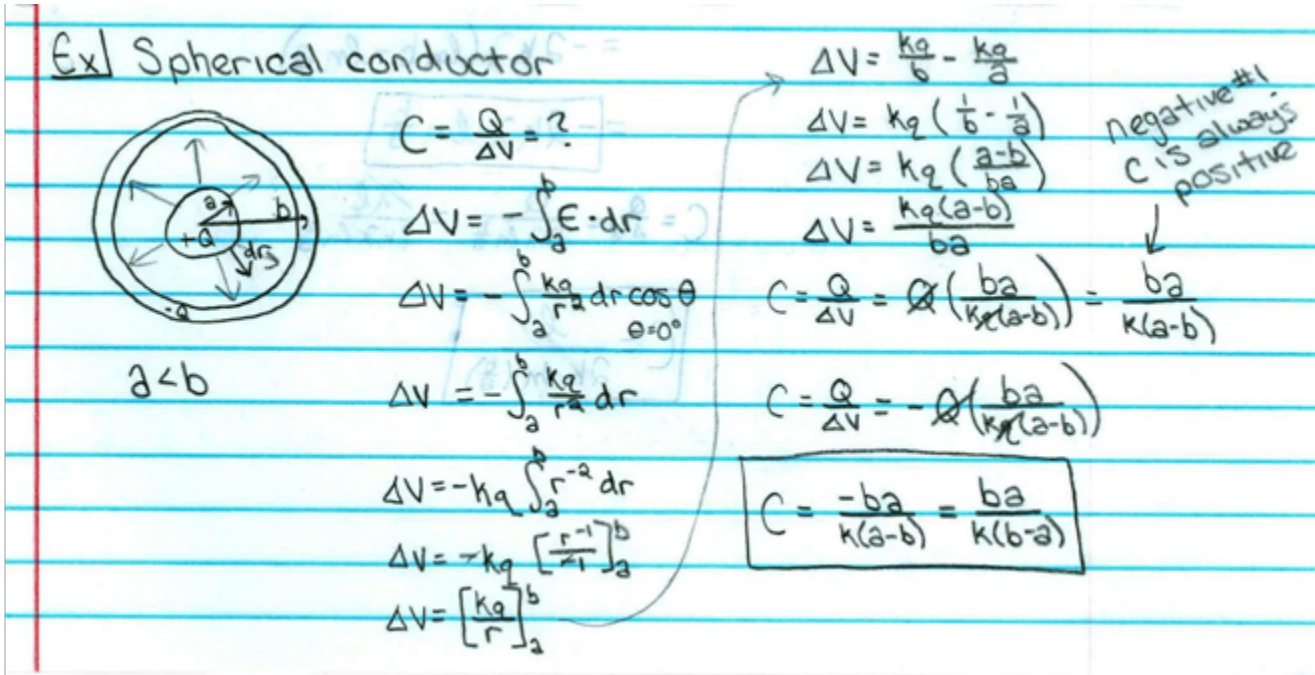 Ex] Spherical conductor
a
b
+Q
dr
-Q
a<b
C = Q/ΔV = ?
ΔV = -∫_a^b E·dr
ΔV = -∫_a^b kq/r² dr cos θ
θ=0°
ΔV = -∫_a^b kq/r² dr
ΔV = -kq ∫_a^b r⁻² dr
ΔV = -kq [r⁻¹/-1]_a^b
ΔV = [kq/r]_a^b
ΔV = kq/b - kq/a
ΔV = kq (1/b - 1/a)
ΔV = kq (a-b/ba)
ΔV = kq(a-b)/ba
negative #!
C is always
positive
C = Q/ΔV = Q (ba/kq(a-b)) = ba/k(a-b)
C = Q/ΔV = -Q (ba/kq(a-b))
C = -ba/k(a-b) = ba/k(b-a)